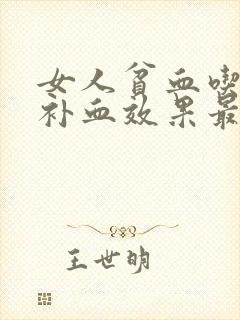 女人贫血喫
补血效果最
王世明